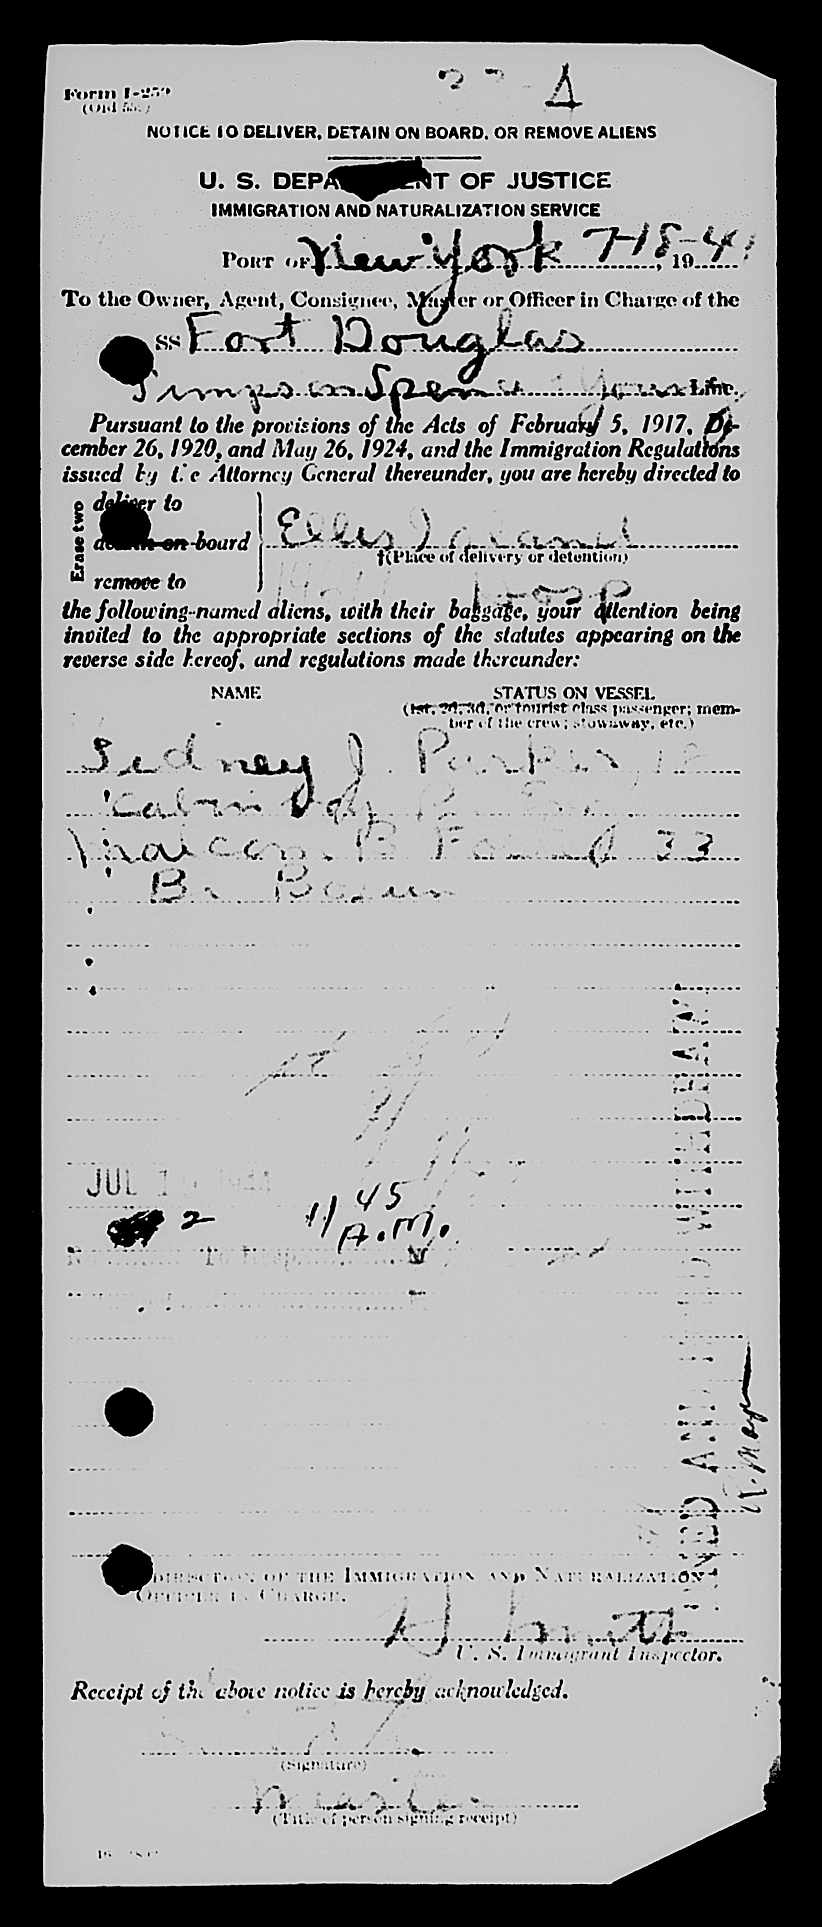 Form I-259
22-A
NOTICE TO DELIVER, DETAIN ON BOARD, OR REMOVE ALIENS
U. S. DEPARTMENT OF JUSTICE
IMMIGRATION AND NATURALIZATION SERVICE
PORT OF New York 7-18-41, 19
To the Owner, Agent, Consignee, Master or Officer in Charge of the
SS Fort Douglas
Simpson Spence & Young Line.
Pursuant to the provisions of the Acts of February 5, 1917, De-
cember 26, 1920, and May 26, 1924, and the Immigration Regulations
issued by the Attorney General thereunder, you are hereby directed to
Erase two
deliver to
detain on board
remove to
Ellis Island
†(Place of delivery or detention)
Hosp
the following-named aliens, with their baggage, your attention being
invited to the appropriate sections of the statutes appearing on the
reverse side hereof, and regulations made thereunder:
NAME
STATUS ON VESSEL
(1st, 2d, 3d, or tourist class passenger; mem-
ber of the crew; stowaway, etc.)
Sidney J. Parker, 18
Cabin Boy Br. Eng
Malcom B 33
Br. Bosun
JUL
2
11 45
A.M.
To Hosp.
AND WITHDRAWN
R. May
DIRECTION OF THE IMMIGRATION AND NATURALIZATION
OFFICER IN CHARGE.
Smith
U. S. Immigrant Inspector.
Receipt of the above notice is hereby acknowledged.
(Signature)
Master
(Title of person signing receipt)